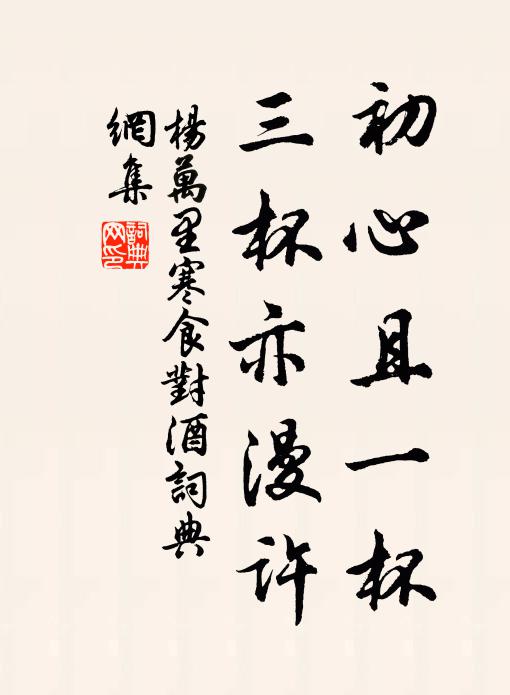 初心且一杯
三杯亦漫許
楊萬里寒食對酒詞典
網集
詞典
网印